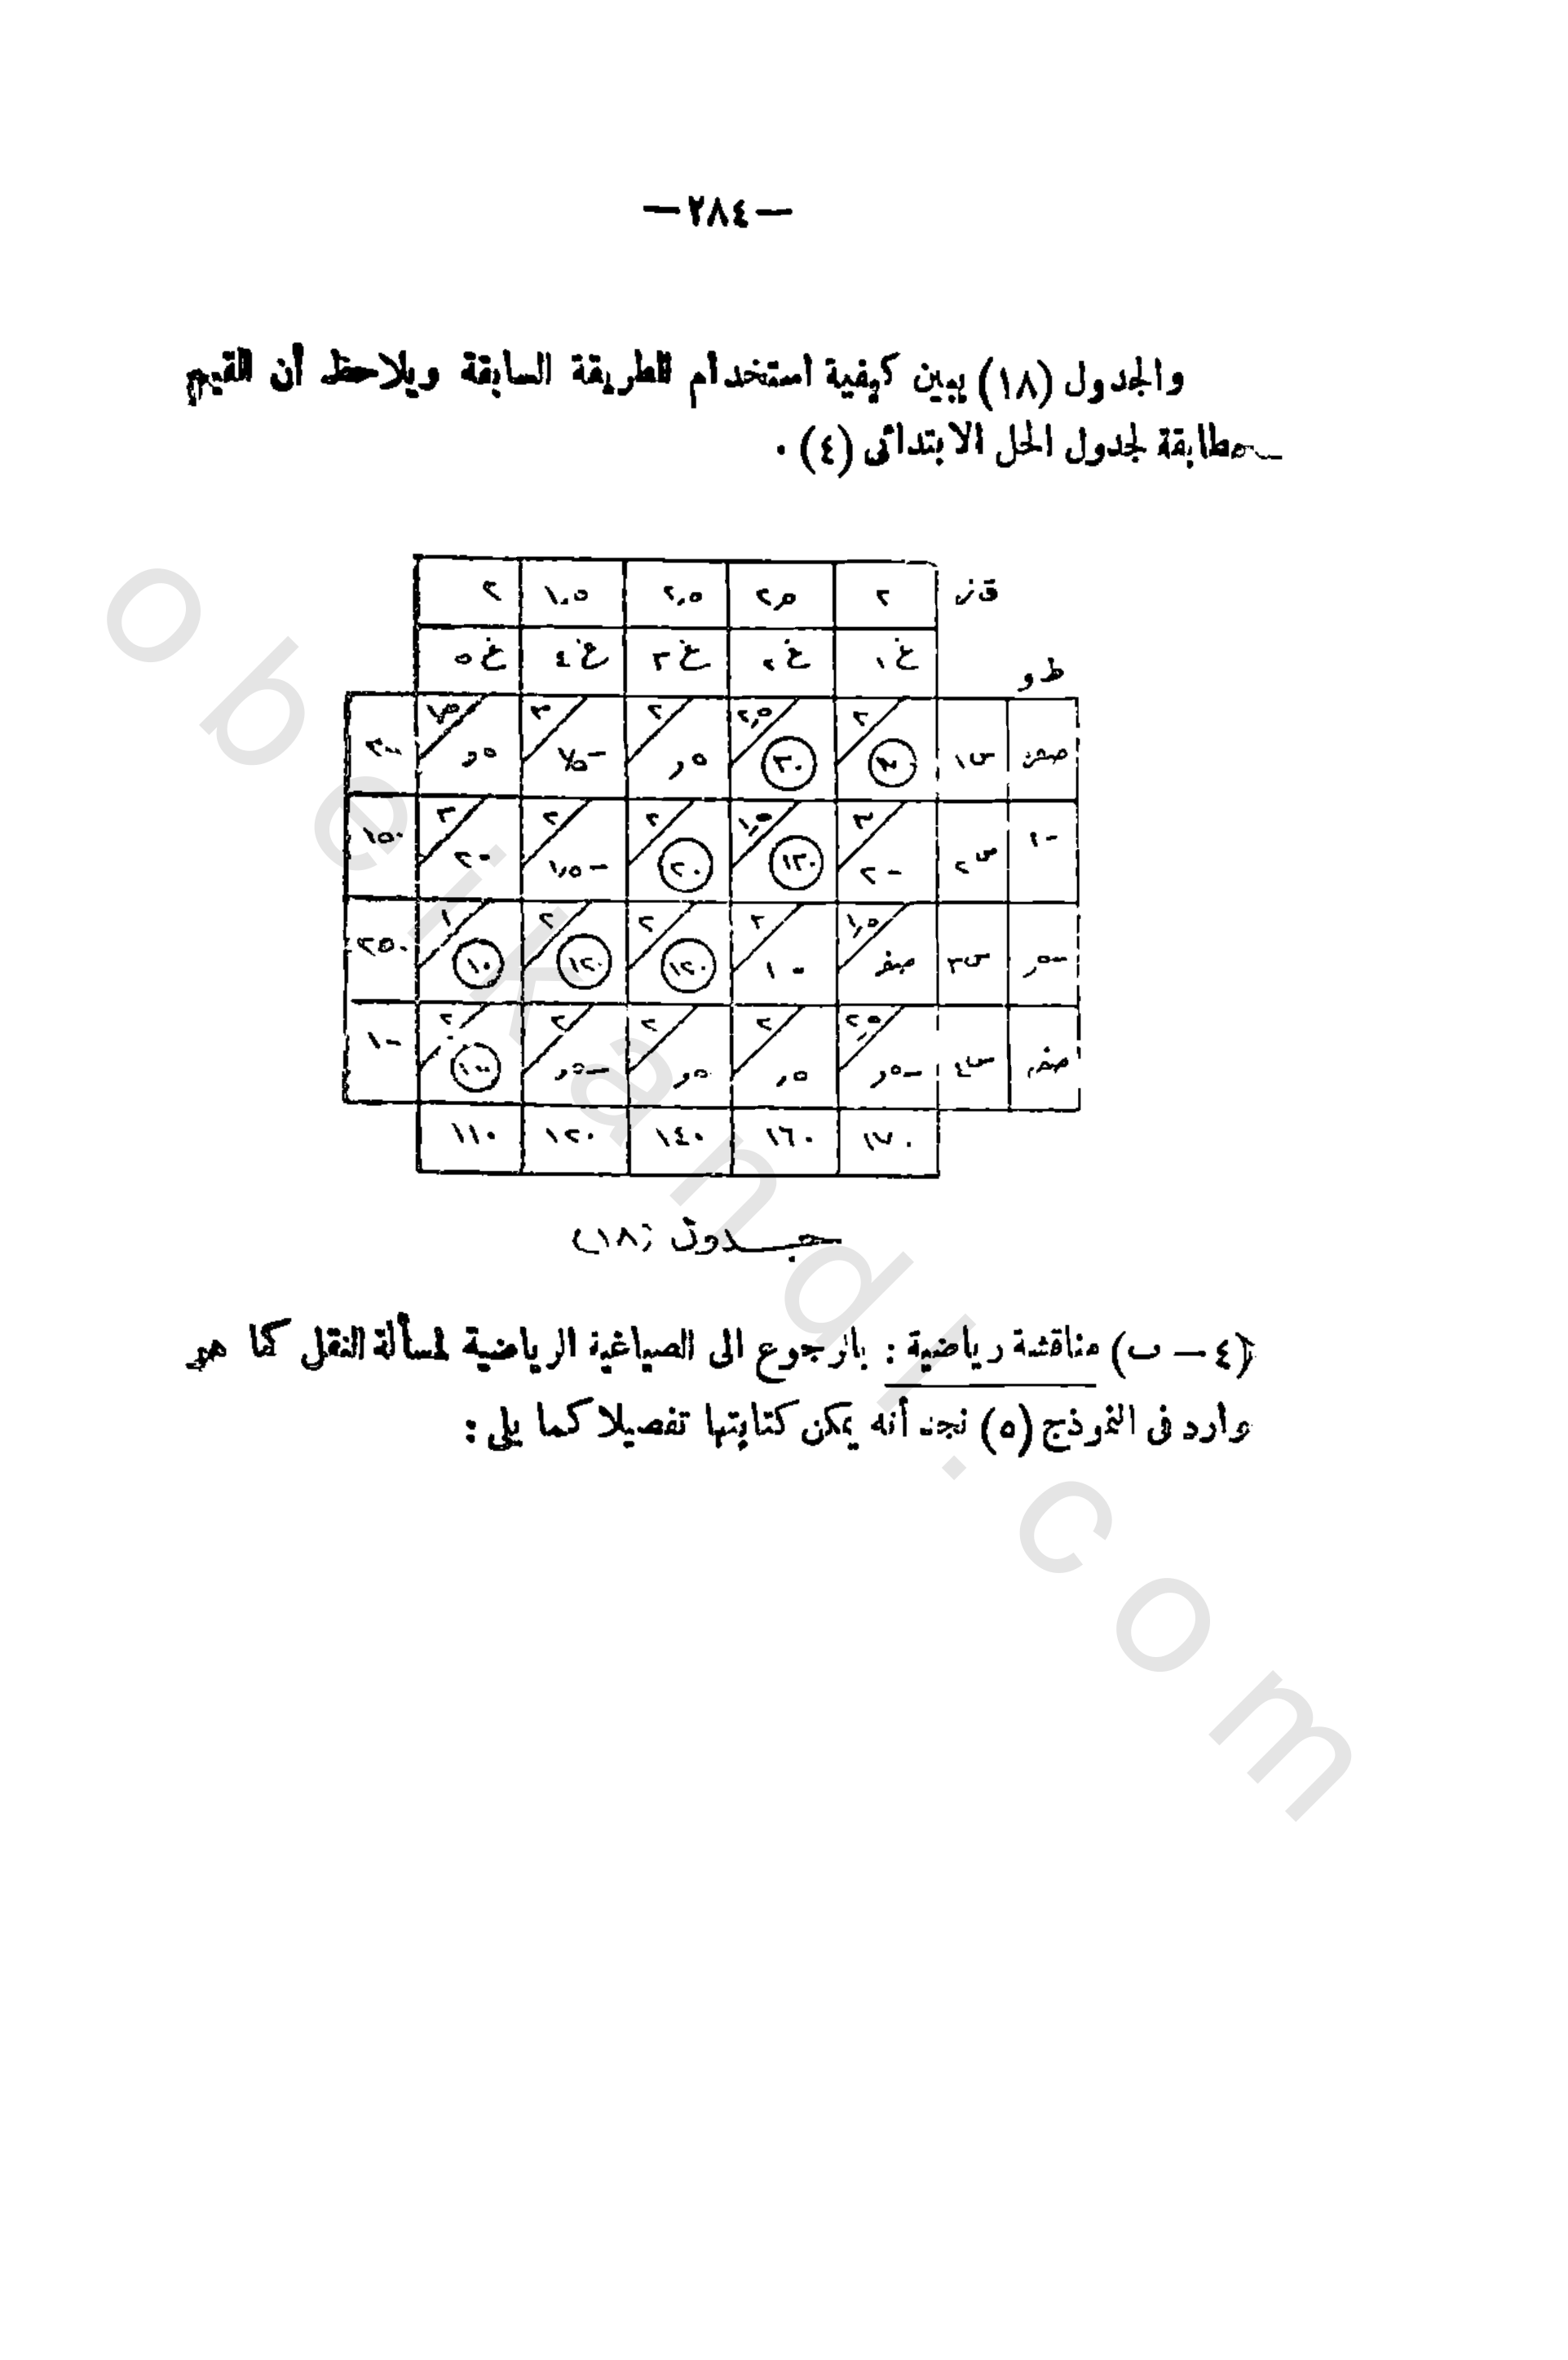 —٢٨٤—
والجدول (١٨) يبين كيفية استخدام الطريقة السابقة ويلاحظ أن القيم
مطابقة لجدول الحل الابتدائى (٤) .
ق ز ٢ ٢,٥ ٢,٥ ١,٥ ٢
ط و غ ١ غ ٢ غ ٣ غ ٤ غ ٥
صفر س ١ ٢ ٢,٥ ٣٠ ٢ ,٥ ٣ ,٥
-١ س ٢ -٢ ١,٥ ١٣٠ ٢ ٢٠ ٢ -١,٥ ٣ -٢ ١٥٠
-,٥ س ٣ ١,٥ صفر ٢ -١ ٢ ١٢٠ ٢ ١٢٠ ١ ١٠ ٢٥٠
صفر س ٤ ٢,٥ -,٥ ٢ ,٥ ٢ ,٥ ٢ -,٥ ٢ ١٠٠ ١٠٠
١٧٠ ١٦٠ ١٤٠ ١٢٠ ١١٠
جدول (١٨)
(٤ — ب) مناقشة رياضية : بالرجوع الى الصياغية الرياضية لمسألة النقل كما هو
وارد فى النموذج (٥) نجد أنه يمكن كتابتها تفصيلا كما يلى :
obeikandl.com